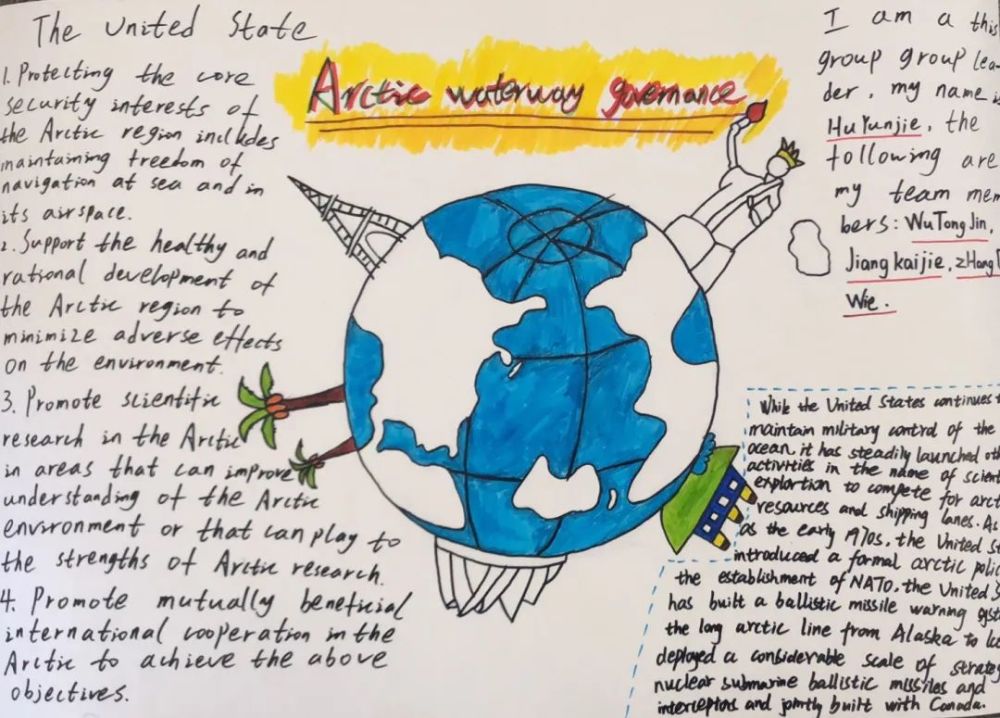 The United State
1. Protecting the core
security interests of
the Arctic region includes
maintaining freedom of
navigation at sea and in
its airspace.
2. Support the healthy and
rational development of
the Arctic region to
minimize adverse effects
on the environment.
3. Promote scientific
research in the Arctic
in areas that can improve
understanding of the Arctic
environment or that can play to
the strengths of Arctic research.
4. Promote mutually beneficial
international cooperation in the
Arctic to achieve the above
objectives.
Arctic waterway governance
I am a this
group group lea-
der, my name
Hu Yunjie, the
following are
my team mem
bers: WuTongJin,
Jiangkaijie, zHang
Wie.
While the United States continues
maintain military control of the
ocean, it has steadily launched
activities in the name of
explortion to compete for
resources and shipping lanes. As
as the early 1970s, the United
introduced a formal arctic
the establishment of NATO, the United
has built a ballistic missile warning
the long arctic line from Alaska to
deployed a considerable scale of
nuclear submarine ballistic missiles and
interceptors and jointly built with Canada.